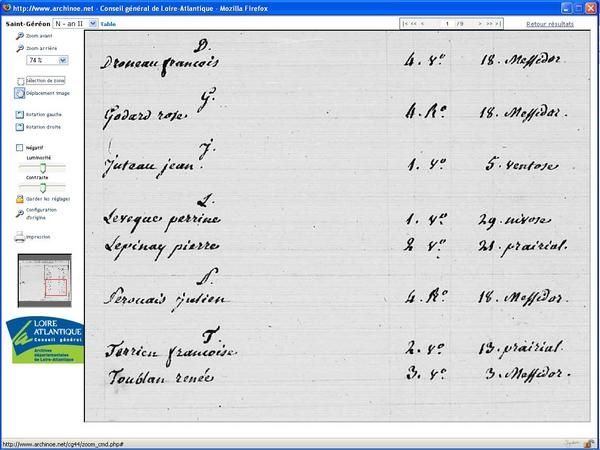 http://www.archinoe.net - Conseil général de Loire-Atlantique - Mozilla Firefox
Saint-Géréon N - an II Table
1 /9
Retour résultats
Zoom avant
Zoom arrière
74 %
Sélection de zone
Déplacement image
Rotation gauche
Rotation droite
Négatif
Luminosité
Contraste
Garder les réglages
Configuration d'origine
Impression
LOIRE ATLANTIQUE
Conseil général
Archives départementales de Loire-Atlantique
D.
Droneau francois 4. v° 18. Messidor.
G.
Godard rose 4. R° 18. Messidor.
J.
Juteau jean. 1. v° 5. ventose
L.
Leveque perrine 1. v° 29. nivose
Lepinay pierre 2 v° 21. prairial.
julien 4. R° 18. Messidor.
T.
Terrien francoise 2. v° 13. prairial.
Toublan renée 3. v° 3. Messidor.
http://www.archinoe.net/cg44/zoom_cmd.php#